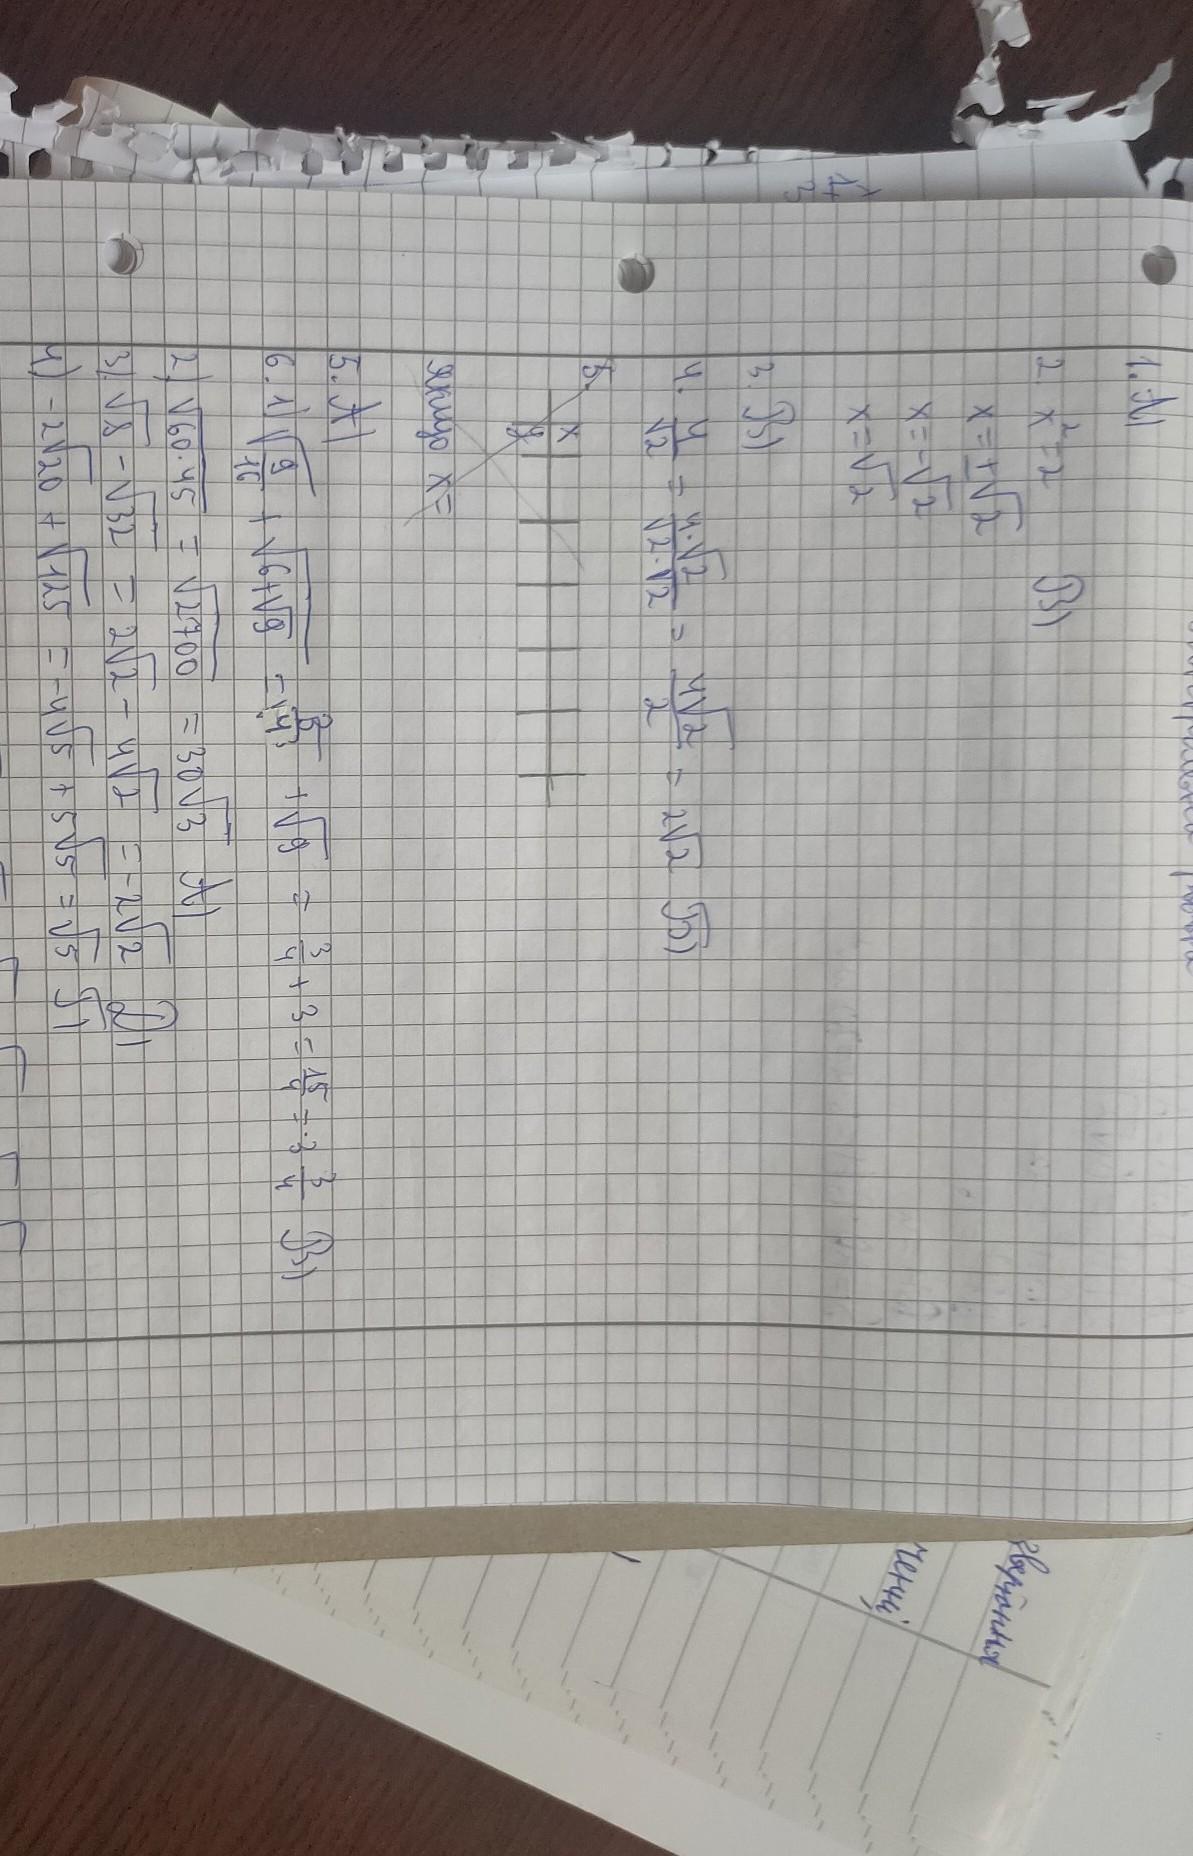 1. А)
2. x² = 2 В)
x = ±√2
x = -√2
x = √2
3. В)
4. 4/√2 = 4·√2/√2·√2 = 4√2/2 = 2√2 Б)
5.
x
y
Якщо x =
5. А)
6. 1) √9/16 + √6+√9 = 3/4 + √9 = 3/4 + 3 = 15/4 = 3 3/4 В)
2) √60·45 = √2700 = 30√3 А)
3) √8 - √32 = 2√2 - 4√2 = -2√2 Д)
4) -2√20 + √125 = -4√5 + 5√5 = √5 Б)